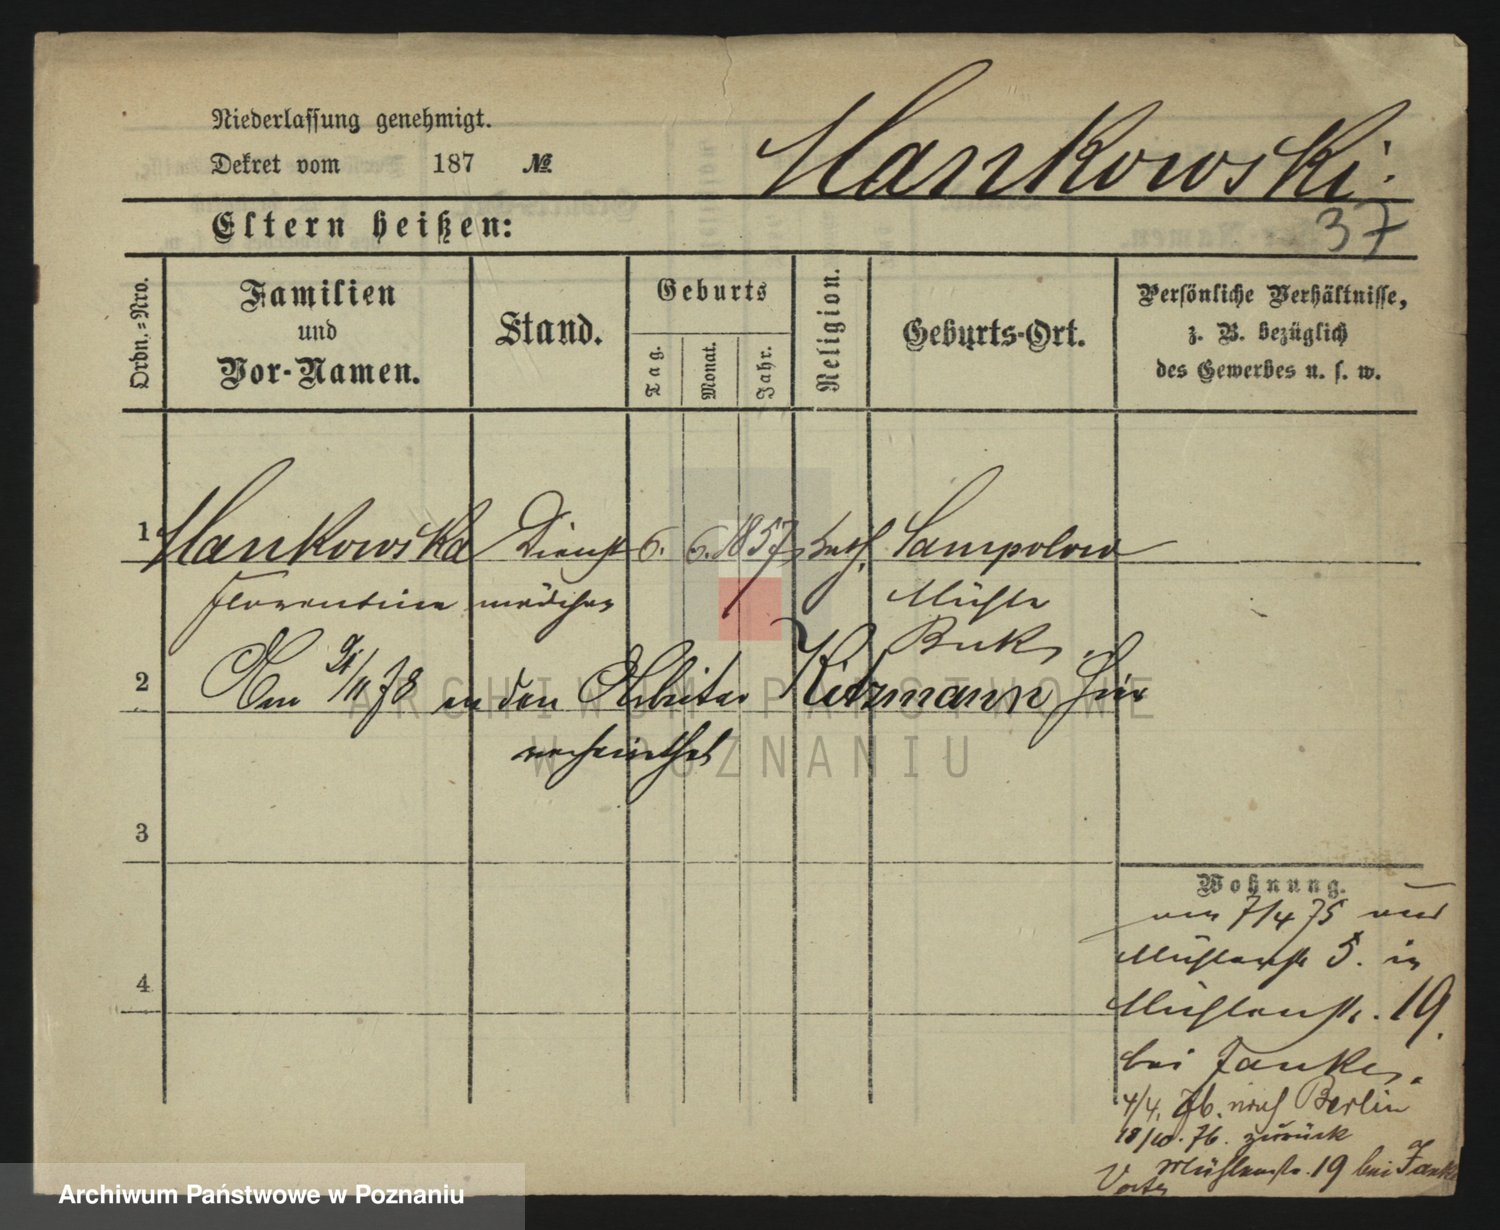 Niederlassung genehmigt.
Dekret vom 187 №
Hankowski.
37
Eltern heißen:
Ordn.=Nro.
Familien
und
Vor-Namen.
Stand.
Geburts
Tag.
Monat.
Jahr.
Religion.
Geburts-Ort.
Persönliche Verhältnisse,
z. B. bezüglich
des Gewerbes u. s. w.
1 Hankowska Dienst 6. 6. 1857 kath. Sampolow
Florentine mädchen Mühle
Buk.
2 Am /11 78 an den Arbeiter Kitzmann hier
verheirathet
3
Wohnung.
von 7/4 75 von
Mühlenstr 5. in
4
Mühlenstr. 19.
bei Janke.
4/4. 76. nach Berlin
18/10. 76. zurück
Mühlenstr. 19 bei Janke
ARCHIWUM PAŃSTWOWE
W POZNANIU
Archiwum Państwowe w Poznaniu